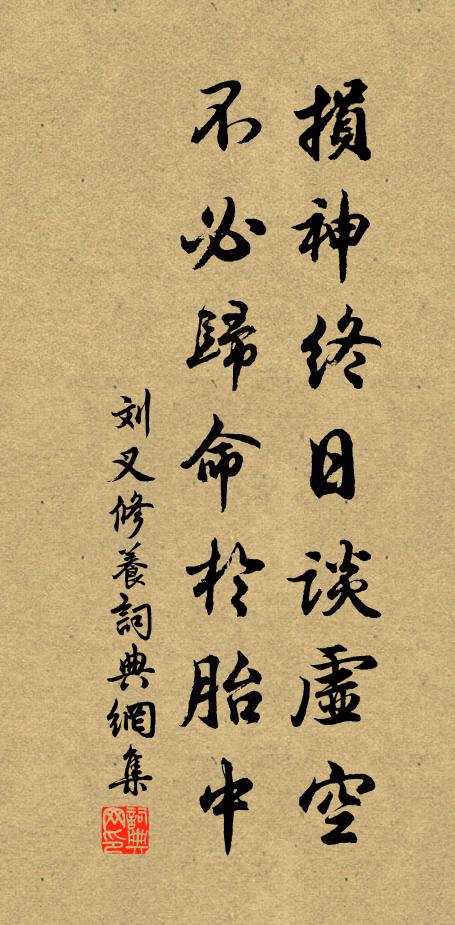 損神終日談虛空
不必歸命於胎中
刘叉修養詞典網集
詞典网印